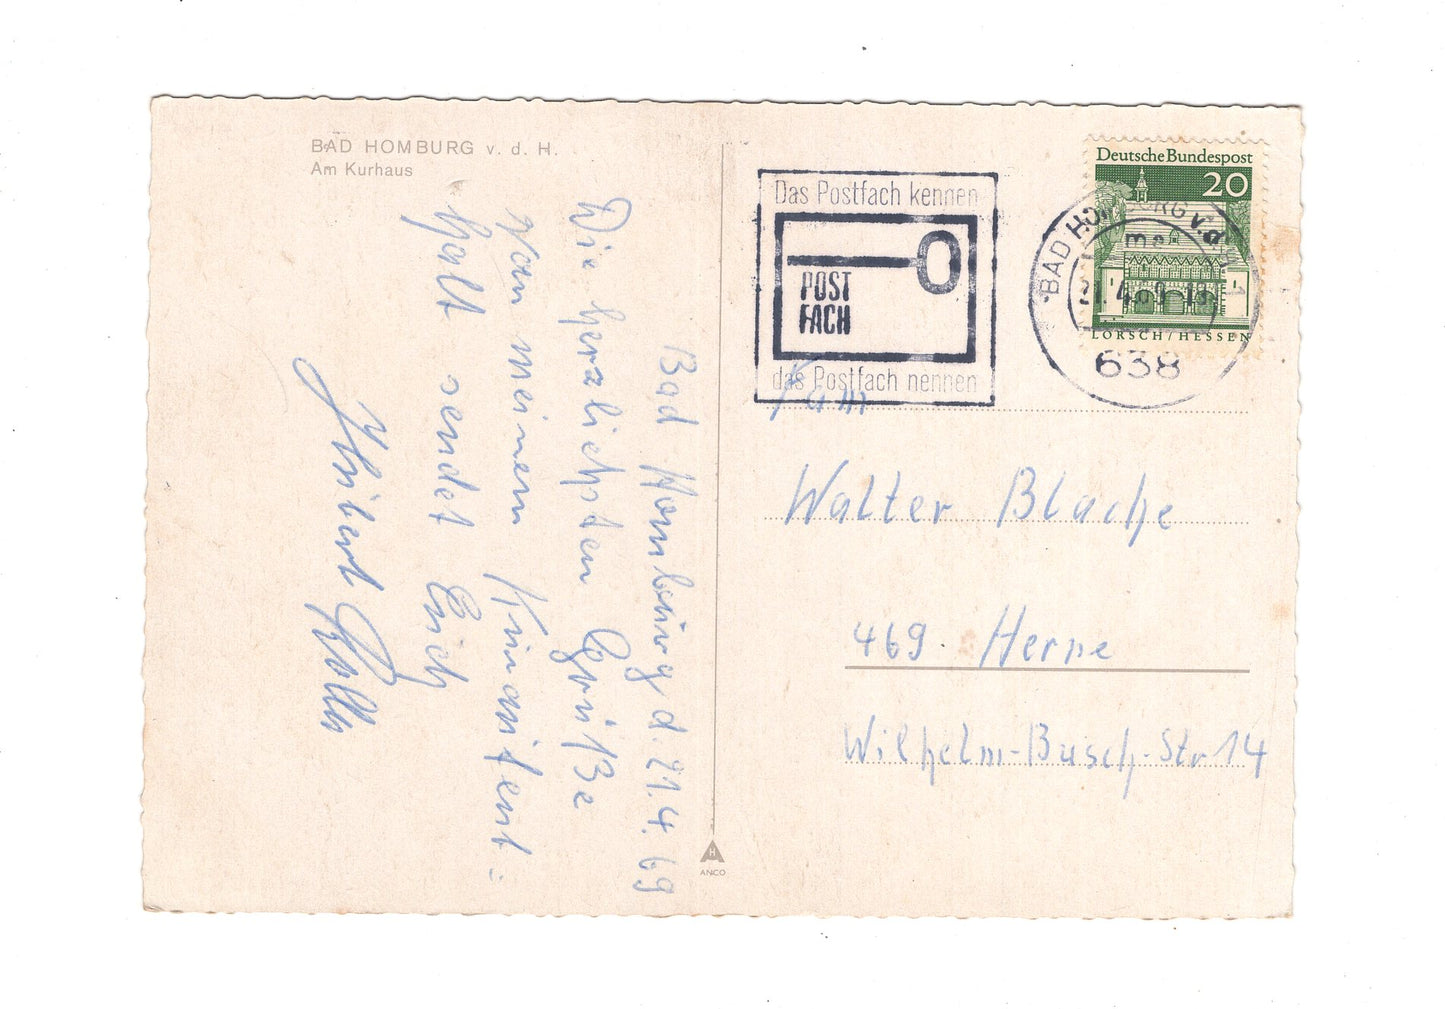 BAD HOMBURG v. d. H.
Am Kurhaus
Bad Homburg d. 21.4.69
Die herzlichsten Grüße
von meinem Kuraufent=
halt sendet Euch
Das Postfach kennen
POST
FACH
das Postfach nennen
Deutsche Bundespost
20
LORSCH/HESSEN
BAD HOMBURG v.d.
638
Fam
Walter Blache
469. Herne
Wilhelm-Busch-Str 14
H
ANCO